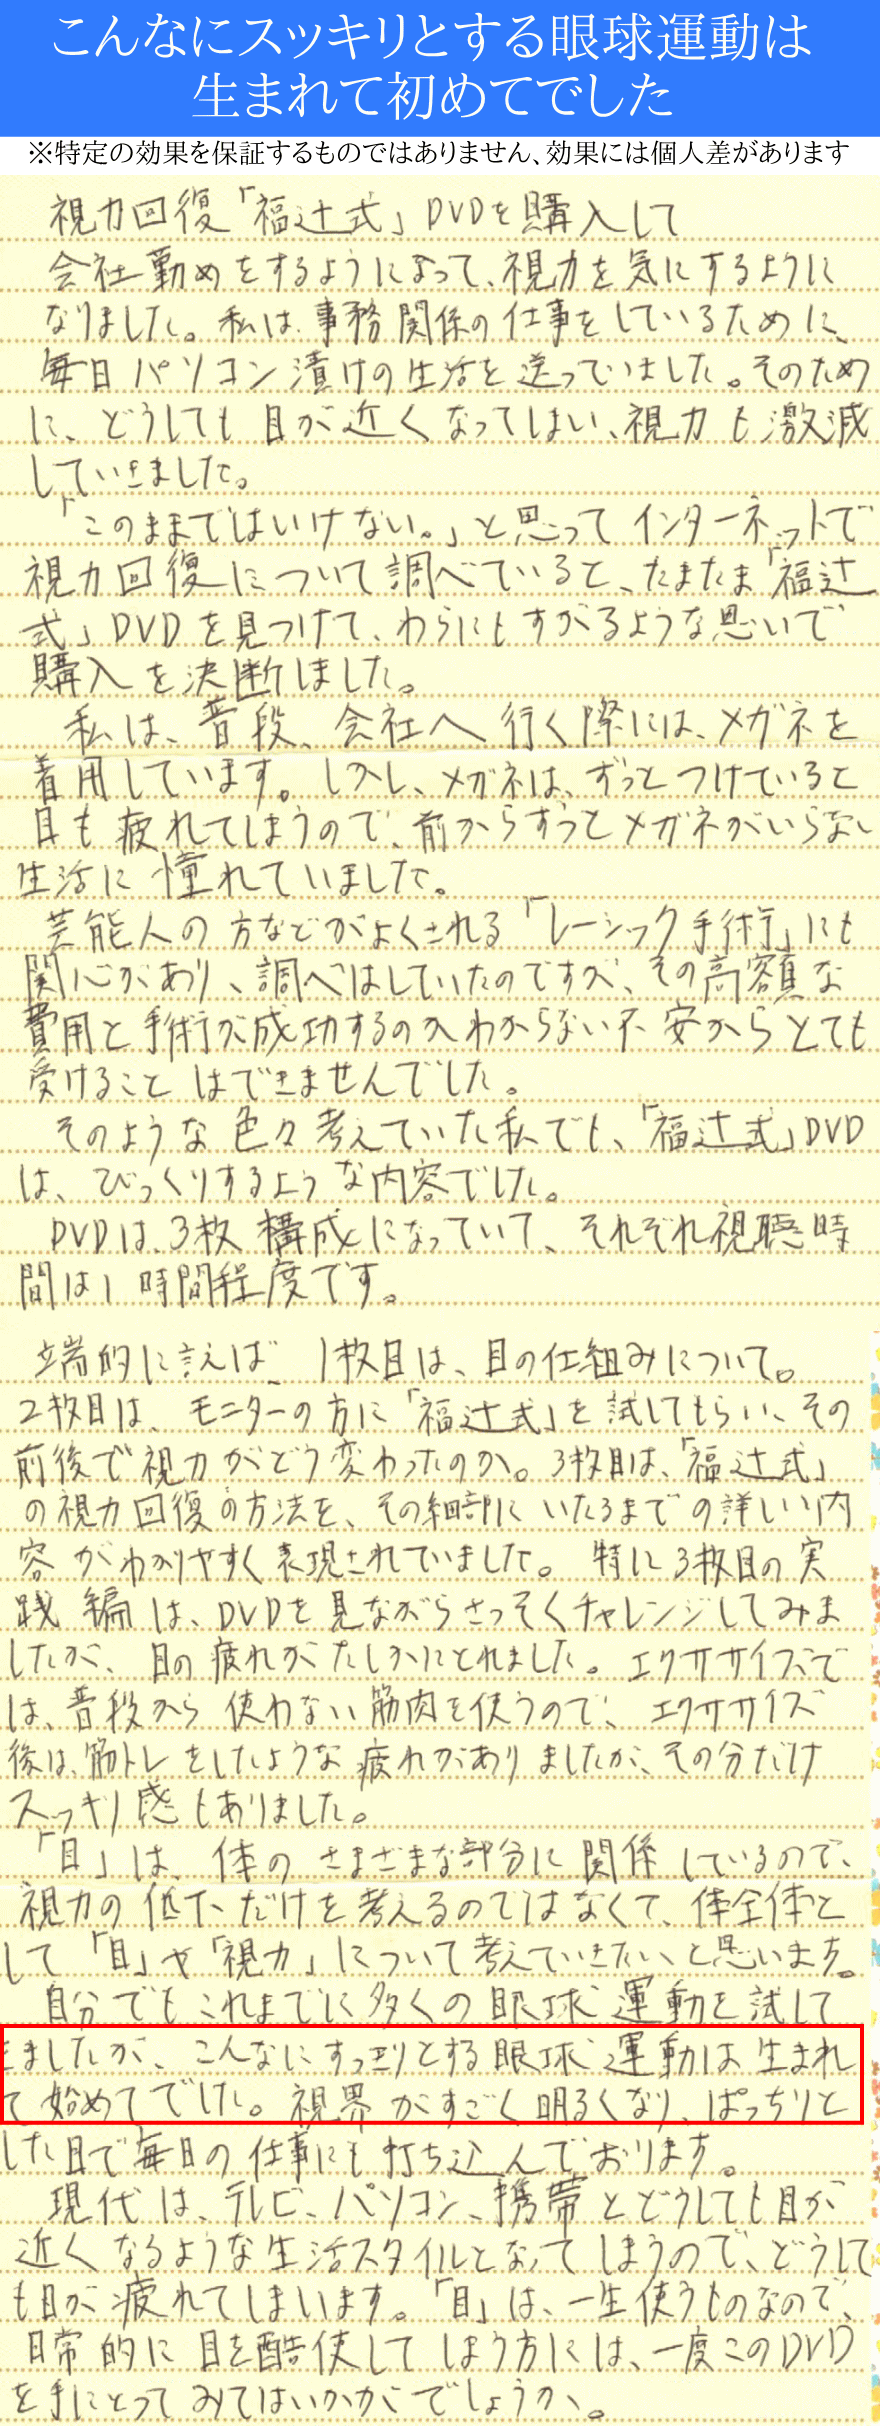 こんなにスッキリとする眼球運動は
生まれて初めてでした
※特定の効果を保証するものではありません、効果には個人差があります
視力回復「福辻式」DVDを購入して
会社勤めをするようになって、視力を気にするように
なりました。私は、事務関係の仕事をしているために、
毎日パソコン漬けの生活を送っていました。そのため
に、どうしても目が近くなってしまい、視力も激減
していきました。
「このままではいけない。」と思ってインターネットで
視力回復について調べていると、たまたま「福辻
式」DVDを見つけて、わらにもすがるような思いで
購入を決断しました。
私は、普段、会社へ行く際には、メガネを
着用しています。しかし、メガネは、ずっとつけていると
目も疲れてしまうので、前からずっとメガネがいらない
生活に憧れていました。
芸能人の方などがよくされる「レーシック手術」にも
関心があり、調べはしていたのですが、その高額な
費用と手術が成功するのかわからない不安からとても
受けることはできませんでした。
そのような色々考えていた私でも、「福辻式」DVD
は、びっくりするような内容でした。
DVDは、3枚構成になっていて、それぞれ視聴時
間は1時間程度です。
端的に言えば、1枚目は、目の仕組みについて。
2枚目は、モニターの方に「福辻式」を試してもらい、その
前後で視力がどう変わったのか。3枚目は、「福辻式」
の視力回復の方法を、その細部にいたるまでの詳しい内
容がわかりやすく表現されていました。特に3枚目の実
践編は、DVDを見ながらさっそくチャレンジしてみま
したが、目の疲れがたしかにとれました。エクササイズで
は、普段から使わない筋肉を使うので、エクササイズ
後は、筋トレをしたような疲れがありましたが、その分だけ
スッキリ感もありました。
「目」は、体のさまざまな部分に関係しているので、
視力の低下だけを考えるのではなくて、体全体と
して「目」や「視力」について考えていきたいと思います。
自分でもこれまでに多くの眼球運動を試して
きましたが、こんなにすっきりとする眼球運動は生まれ
て始めてでした。視界がすごく明るくなり、ぱっちりと
した目で毎日の仕事にも打ち込んでおります。
現代は、テレビ、パソコン、携帯とどうしても目が
近くなるような生活スタイルとなってしまうので、どうして
も目が疲れてしまいます。「目」は、一生使うものなので、
日常的に目を酷使してしまう方には、一度このDVD
を手にとってみてはいかがでしょうか。